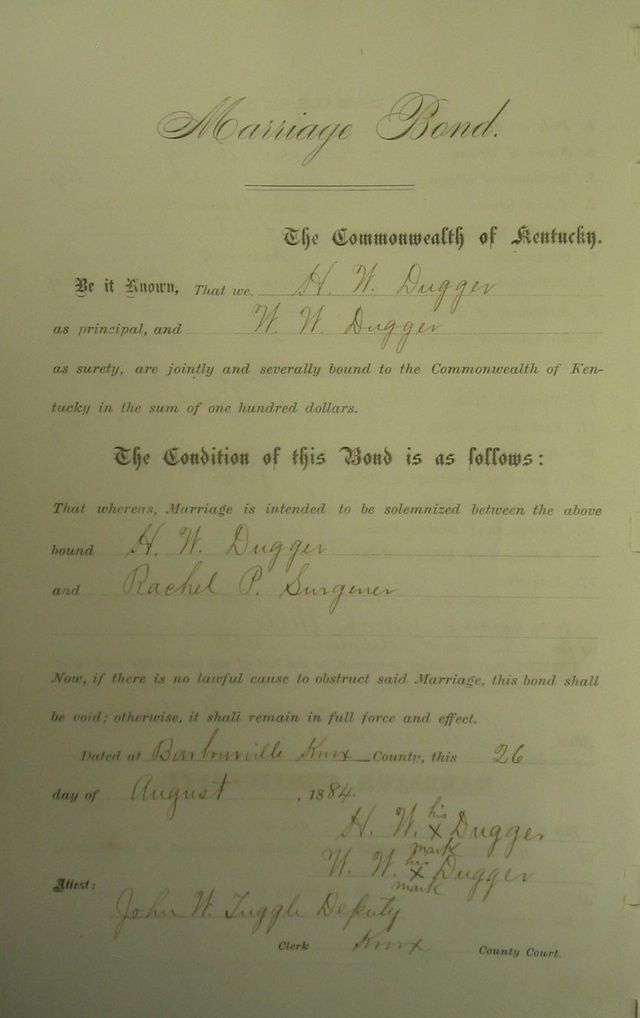 Marriage Bond.
The Commonwealth of Kentucky.
Be it Known, That we H. W. Dugger
as principal, and W. W. Dugger
as surety, are jointly and severally bound to the Commonwealth of Ken-
tucky in the sum of one hundred dollars.
The Condition of this Bond is as follows:
That whereas, Marriage is intended to be solemnized between the above
bound H. W. Dugger
and Rachel P. Surgener
Now, if there is no lawful cause to obstruct said Marriage, this bond shall
be void; otherwise, it shall remain in full force and effect.
Dated at Barbourville Knox County, this 26
day of August, 1884.
his
H. W. X Dugger
mark
his
W. W. X Dugger
mark
Attest:
John W. Tuggle Deputy
Clerk Knox County Court.